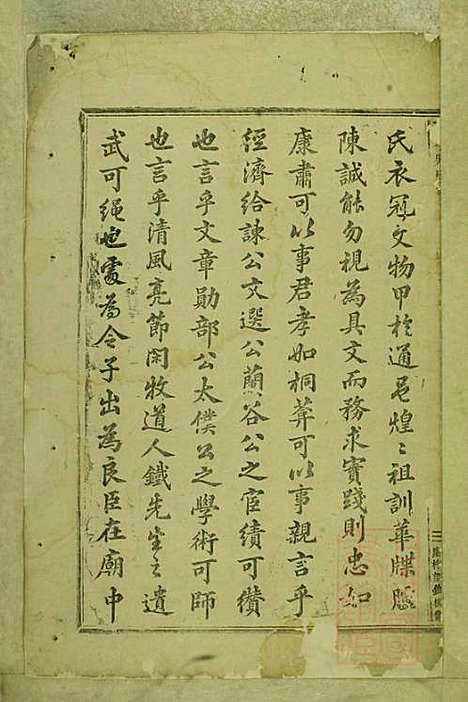 氏衣冠文物甲於通邑煌〻祖訓華牒臚
陳誠能勿視為具文而務求實踐則忠如
康肅可以事君孝如桐葬可以事親言乎
經濟給諫公文選公蘭谷公之宦績可儹
也言乎文章勛部公太僕公之學術可師
也言乎清風亮節閑牧道人鐵先生之遺
武可繩也處為令子出為良臣在廟中